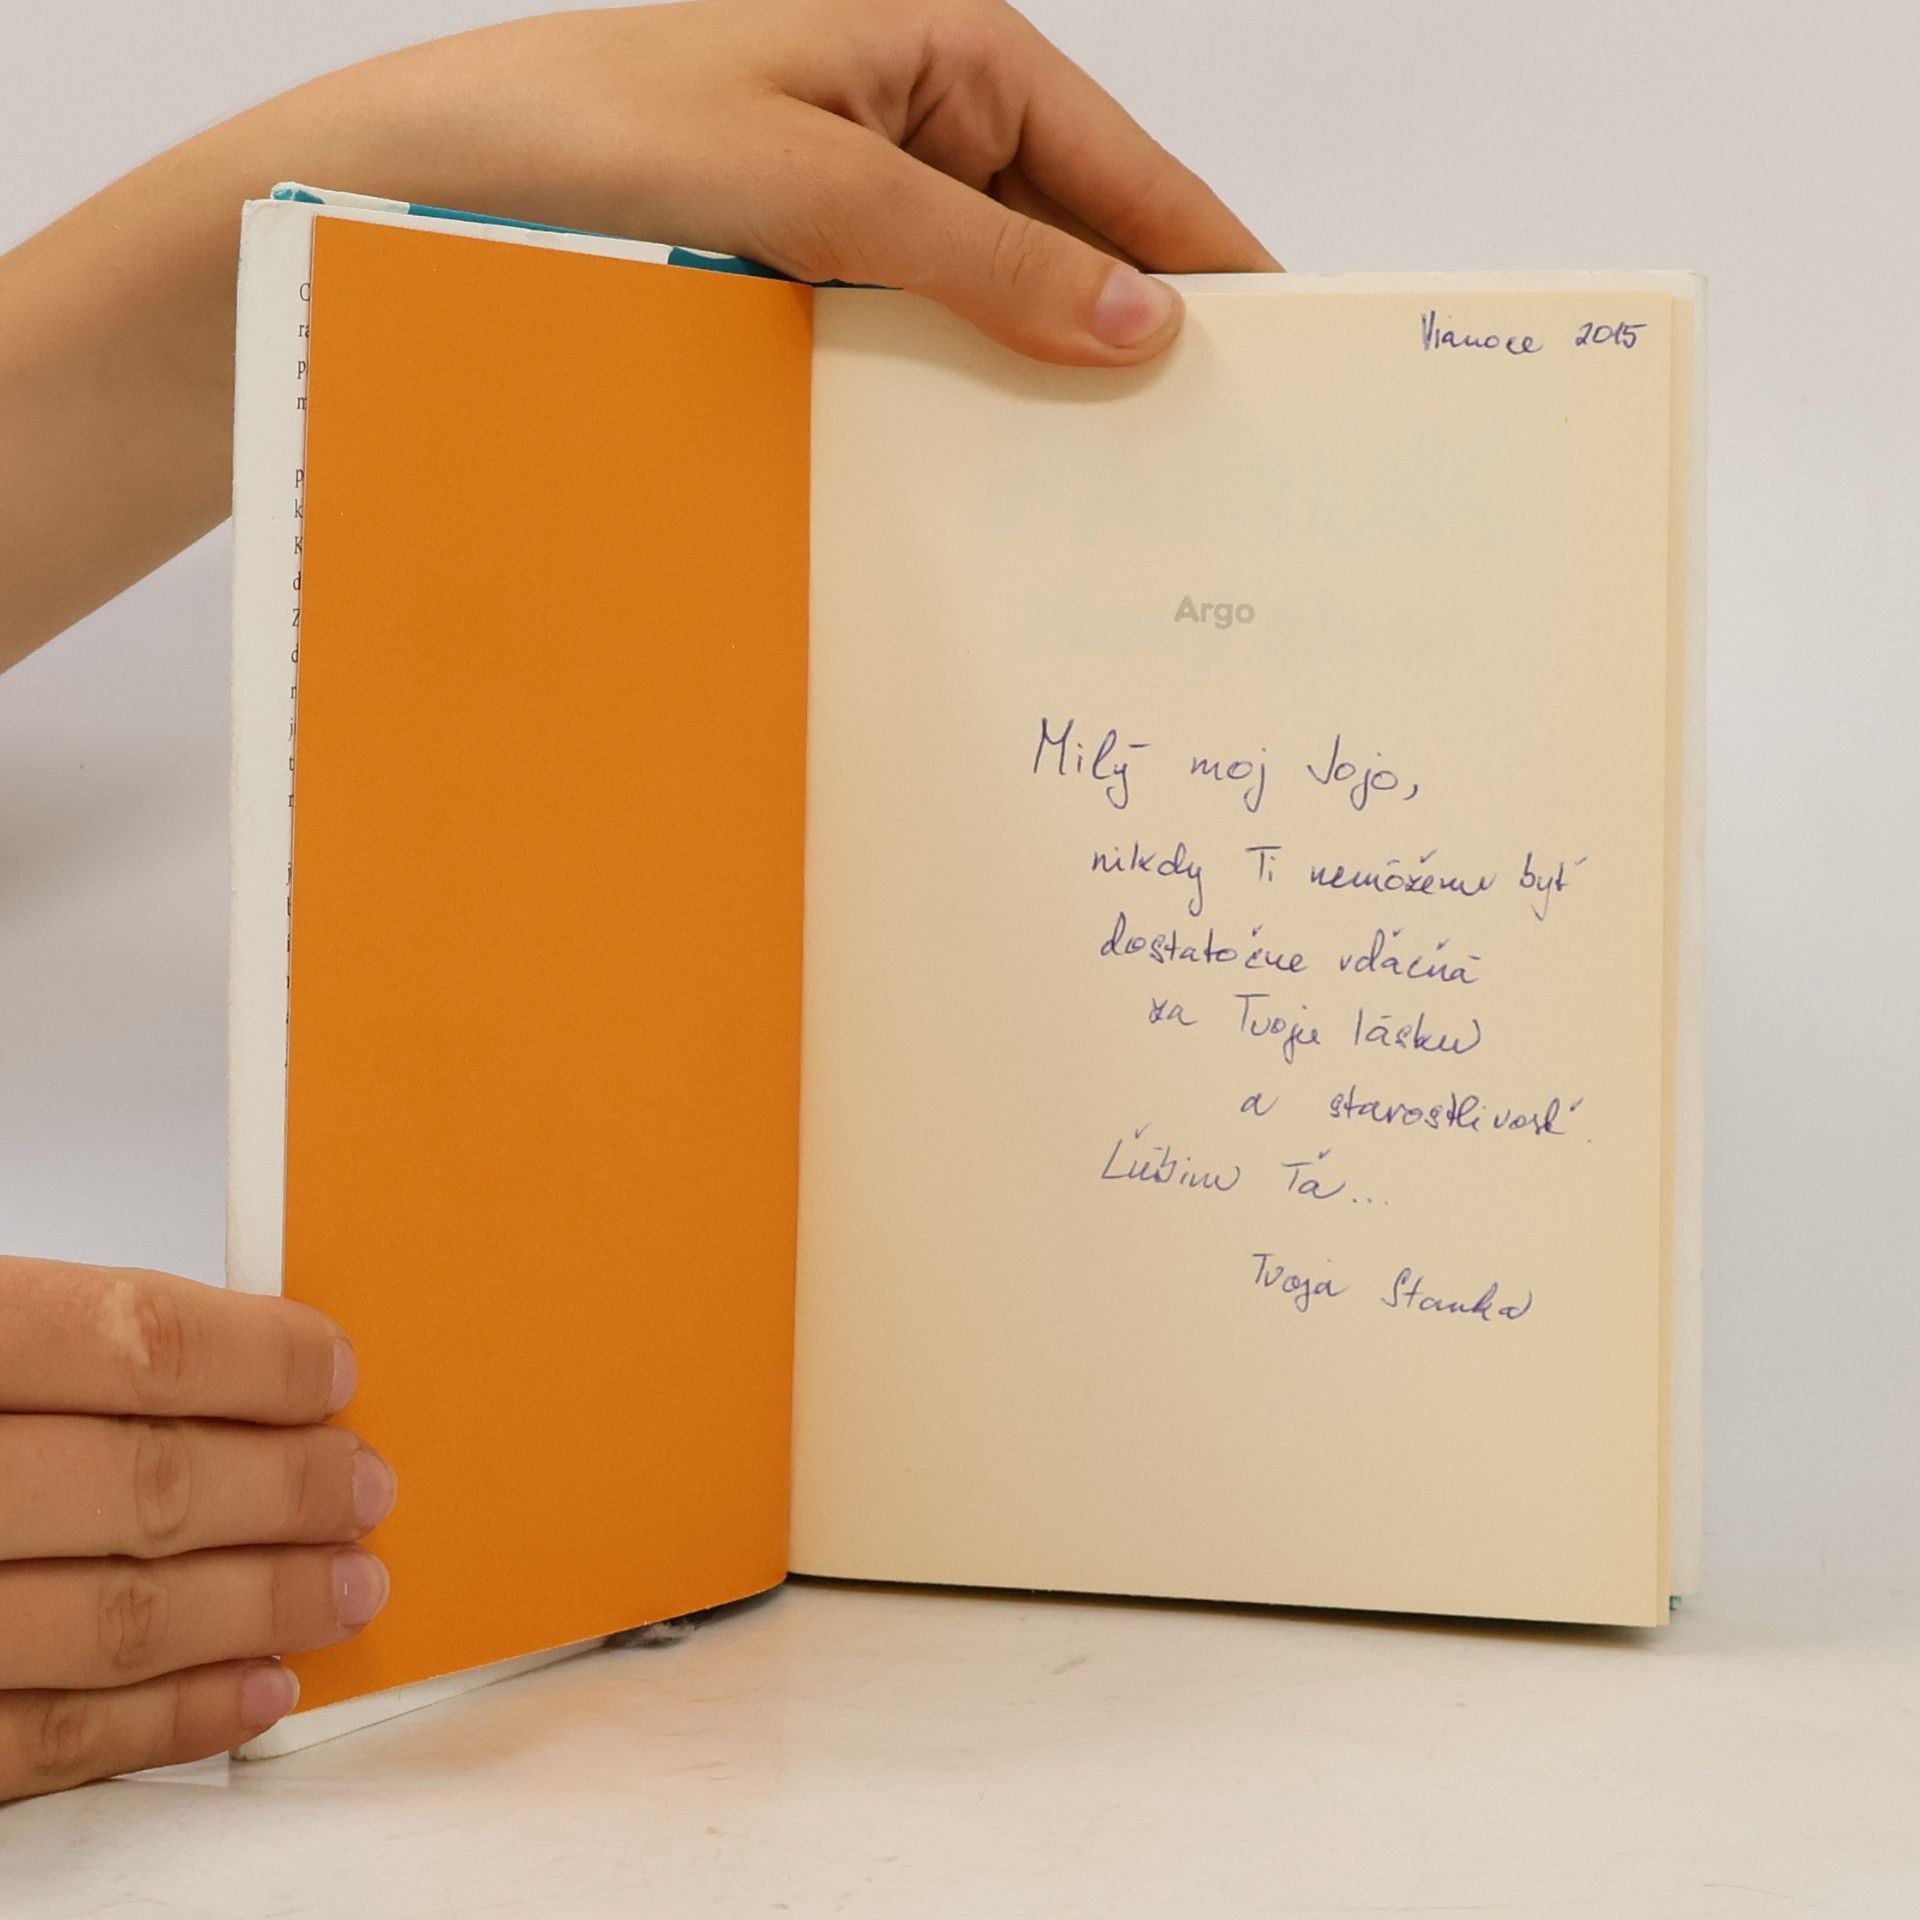 Vianoce 2015
Argo
Milý moj Jojo,
nikdy Ti nemôžem byť
dostatočne vďačná
za Tvoju lásku
a starostlivosť.
Ľúbim Ťa...
Tvoja Stanka